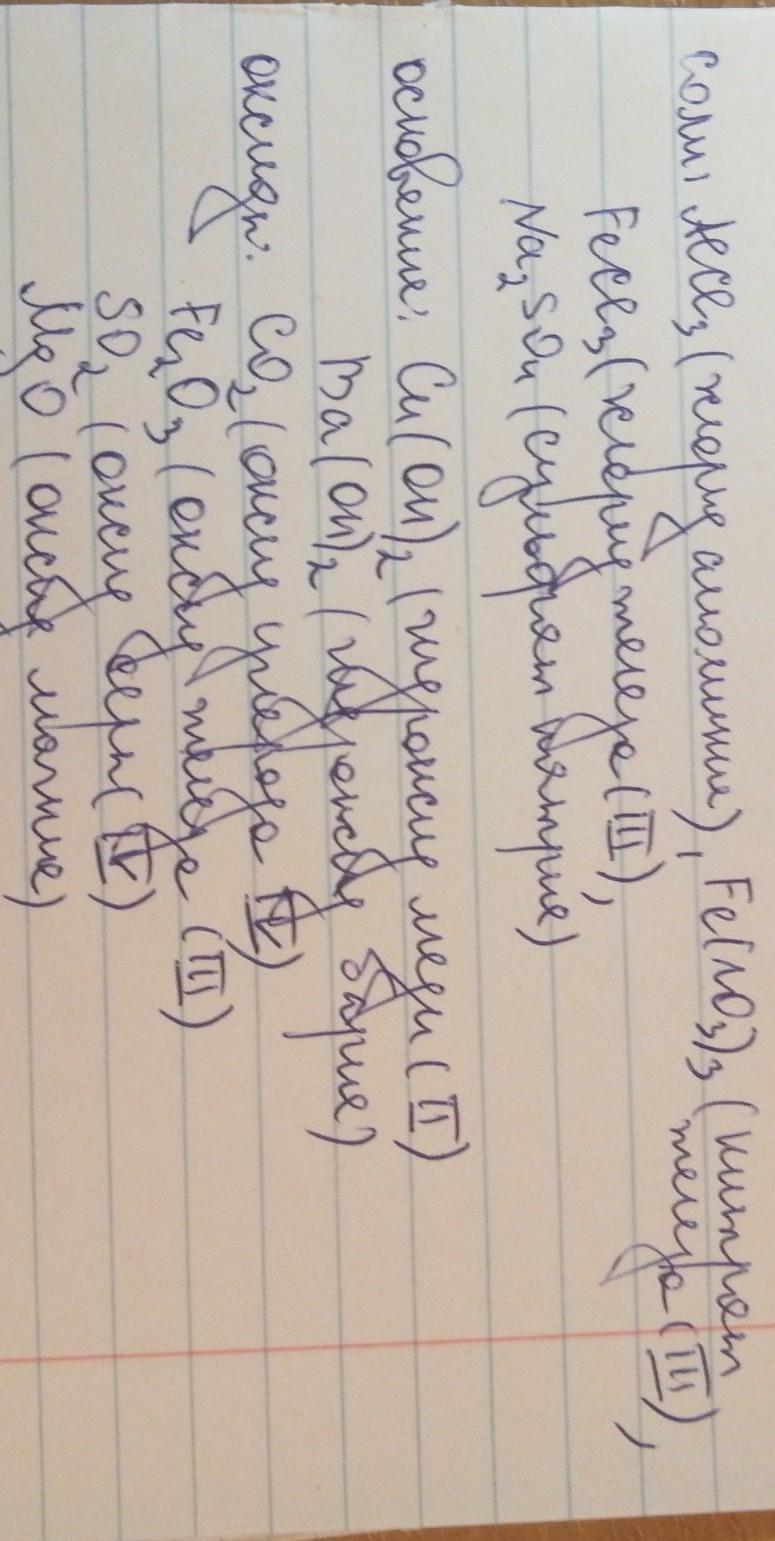 соли: AlCl3 (хлорид алюминия), Fe(NO3)3 (нитрат
железа (III),
FeCl3 (хлорид железа (III),
Na2SO4 (сульфат натрия)
основения: Cu(OH)2 (гидроксид меди (II)
Ba(OH)2 (гидроксид бария)
оксиды: CO2 (оксид углерода IV)
Fe2O3 (оксид железа (III)
SO2 (оксид серы (IV)
MgO (оксид магния)